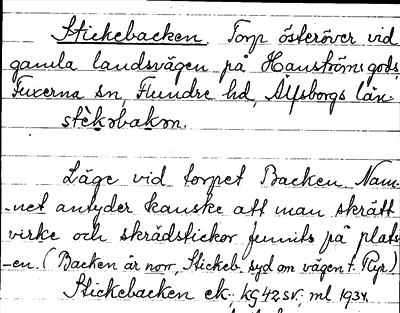 Stickebacken. Torp österöver vid
gamla landsvägen på Hanströms gods,
Fuxerna sn, Flundre hd, Älfsborgs län.
stèkəbakən.
Läge vid torpet Backen. Nam-
-net antyder kanske att man skrätt
virke och skrädstickor funnits på plats
-en. (Backen är norr, Stickeb. syd om vägen t. Ryr)
Stickebacken ek. kG 42 SV; ml 1934.